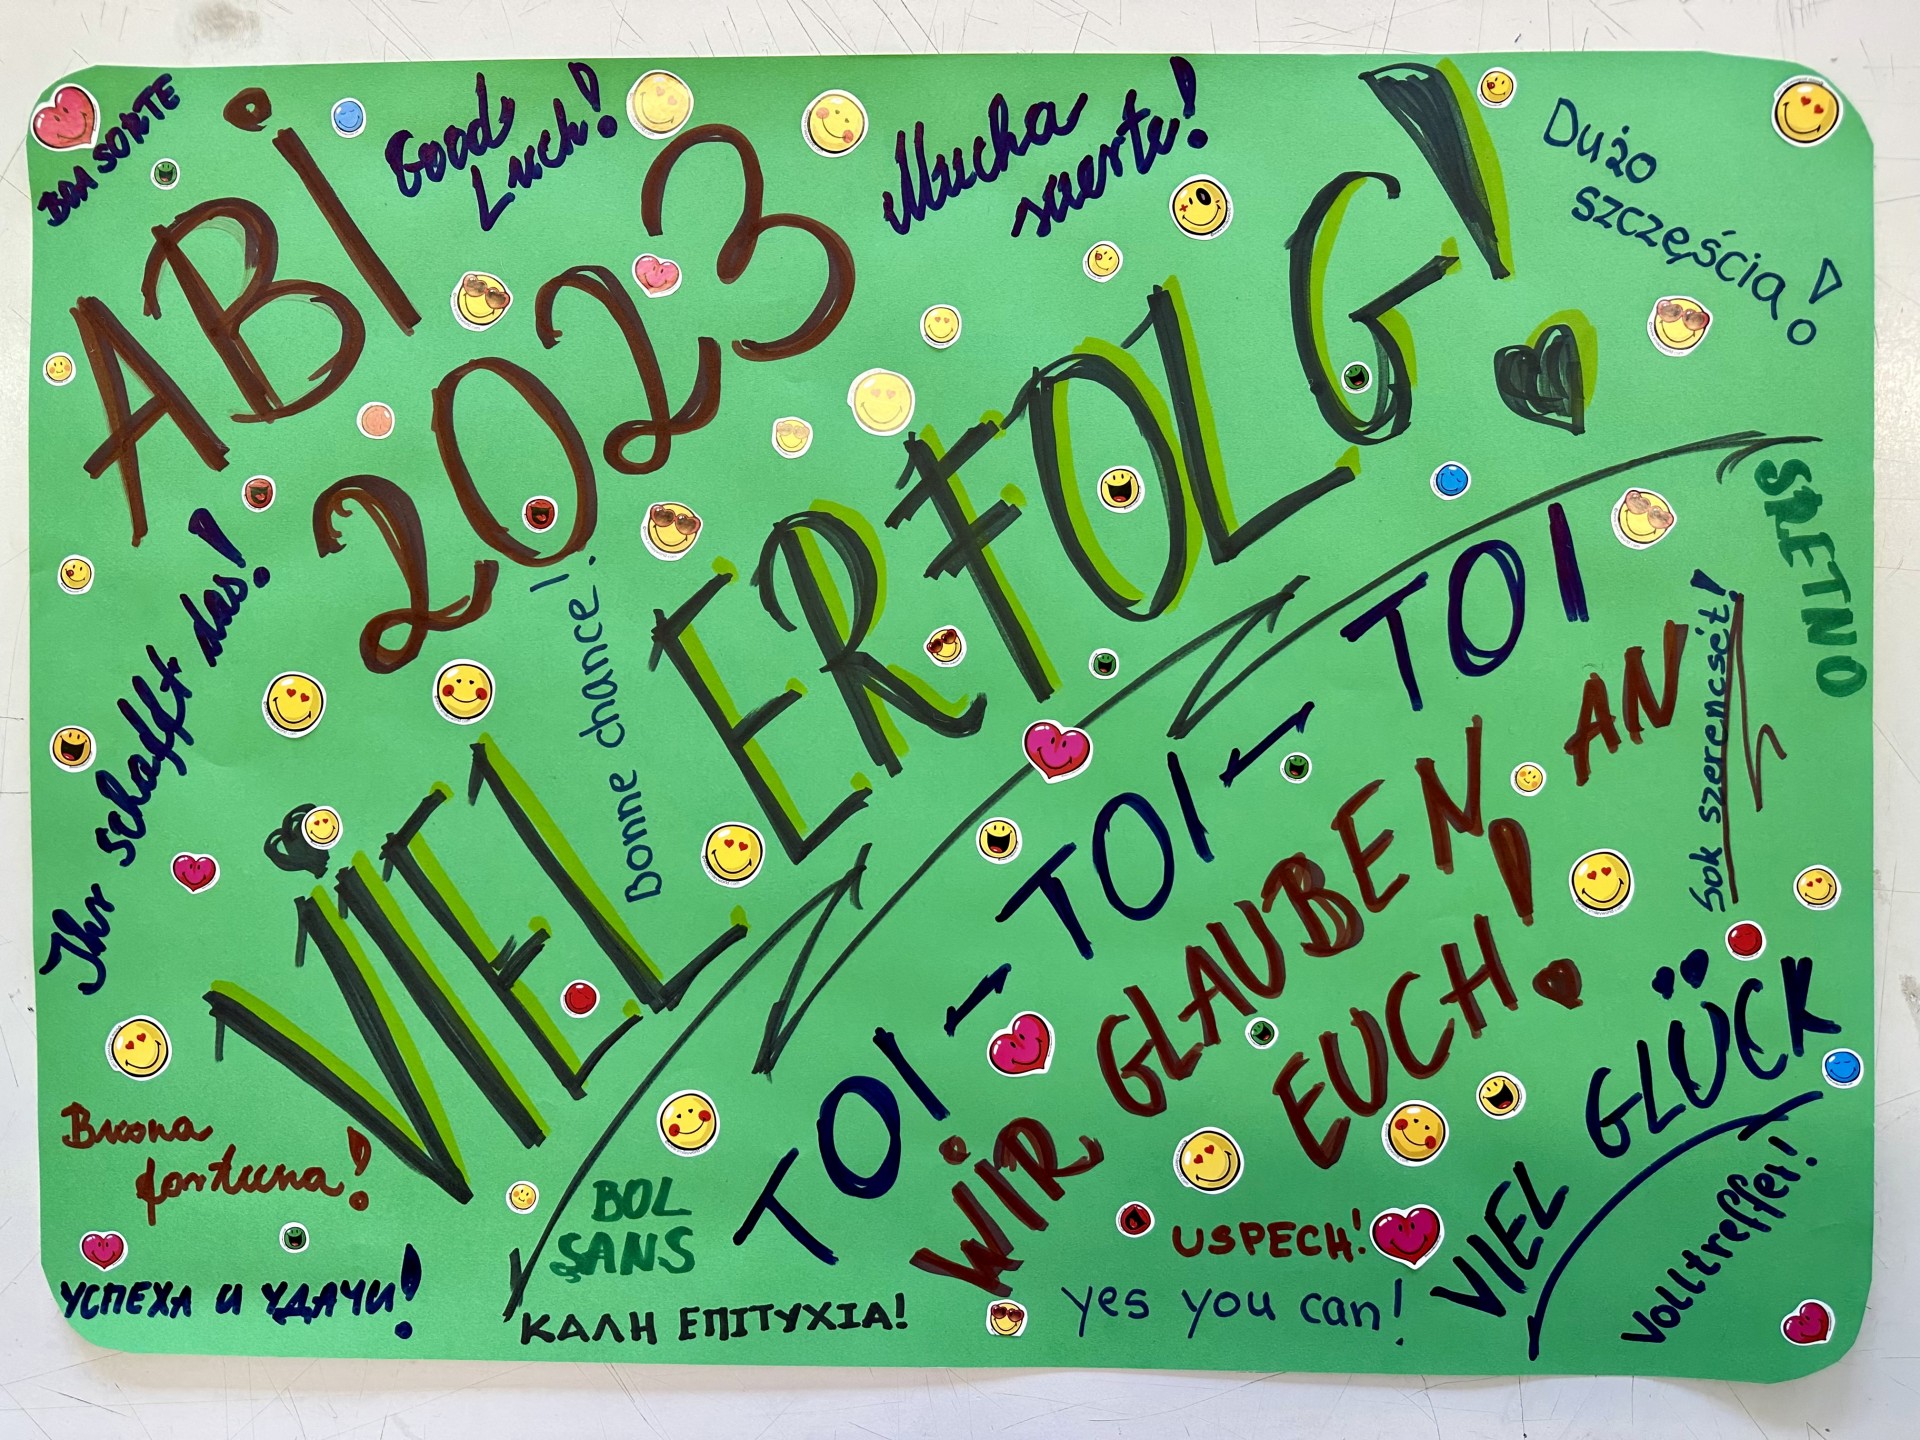 BOA SORTE
Good
Luck!
Mucha
suerte!
Dużo
szczęścia!
ABI
2023
VIEL ERFOLG!
Ihr schafft das!
Bonne chance!
SRETNO
Sok szerencsét!
TOI-TOI-TOI
WIR GLAUBEN AN
EUCH!
VIEL GLÜCK
Volltreffer!
Buona
fortuna!
УСПЕХА И УДАЧИ!
BOL
ŞANS
ΚΑΛΗ ΕΠΙΤΥΧΙΑ!
USPECH!
yes you can!